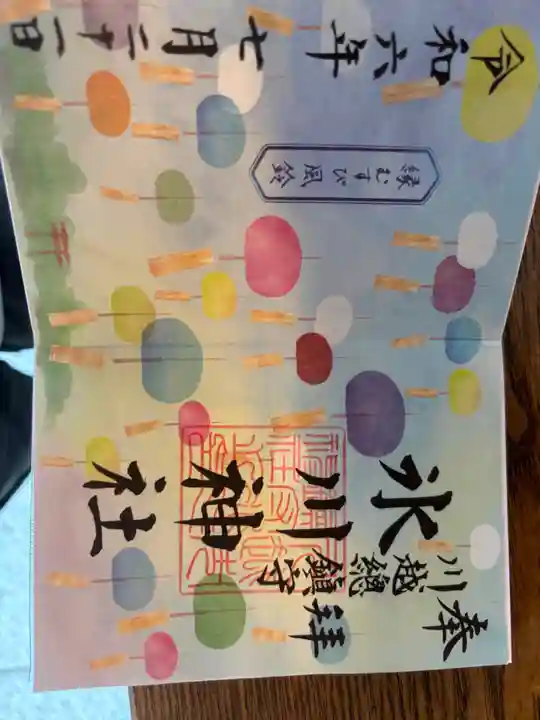 奉拝
川越總鎮守
氷川神社
縁むすび風鈴
令和六年七月二十一日